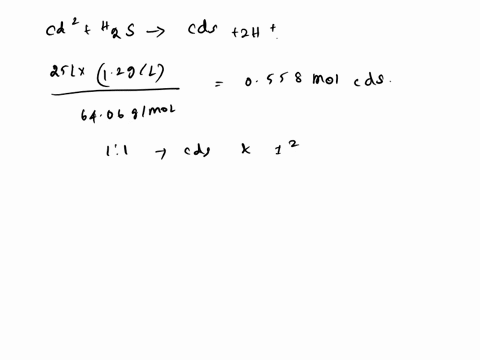 cd² + H2S → cds + 2H +
25L x (1.2g/L) / 64.06 g/mol = 0.558 mol cds.
1:1 → cds x 1²